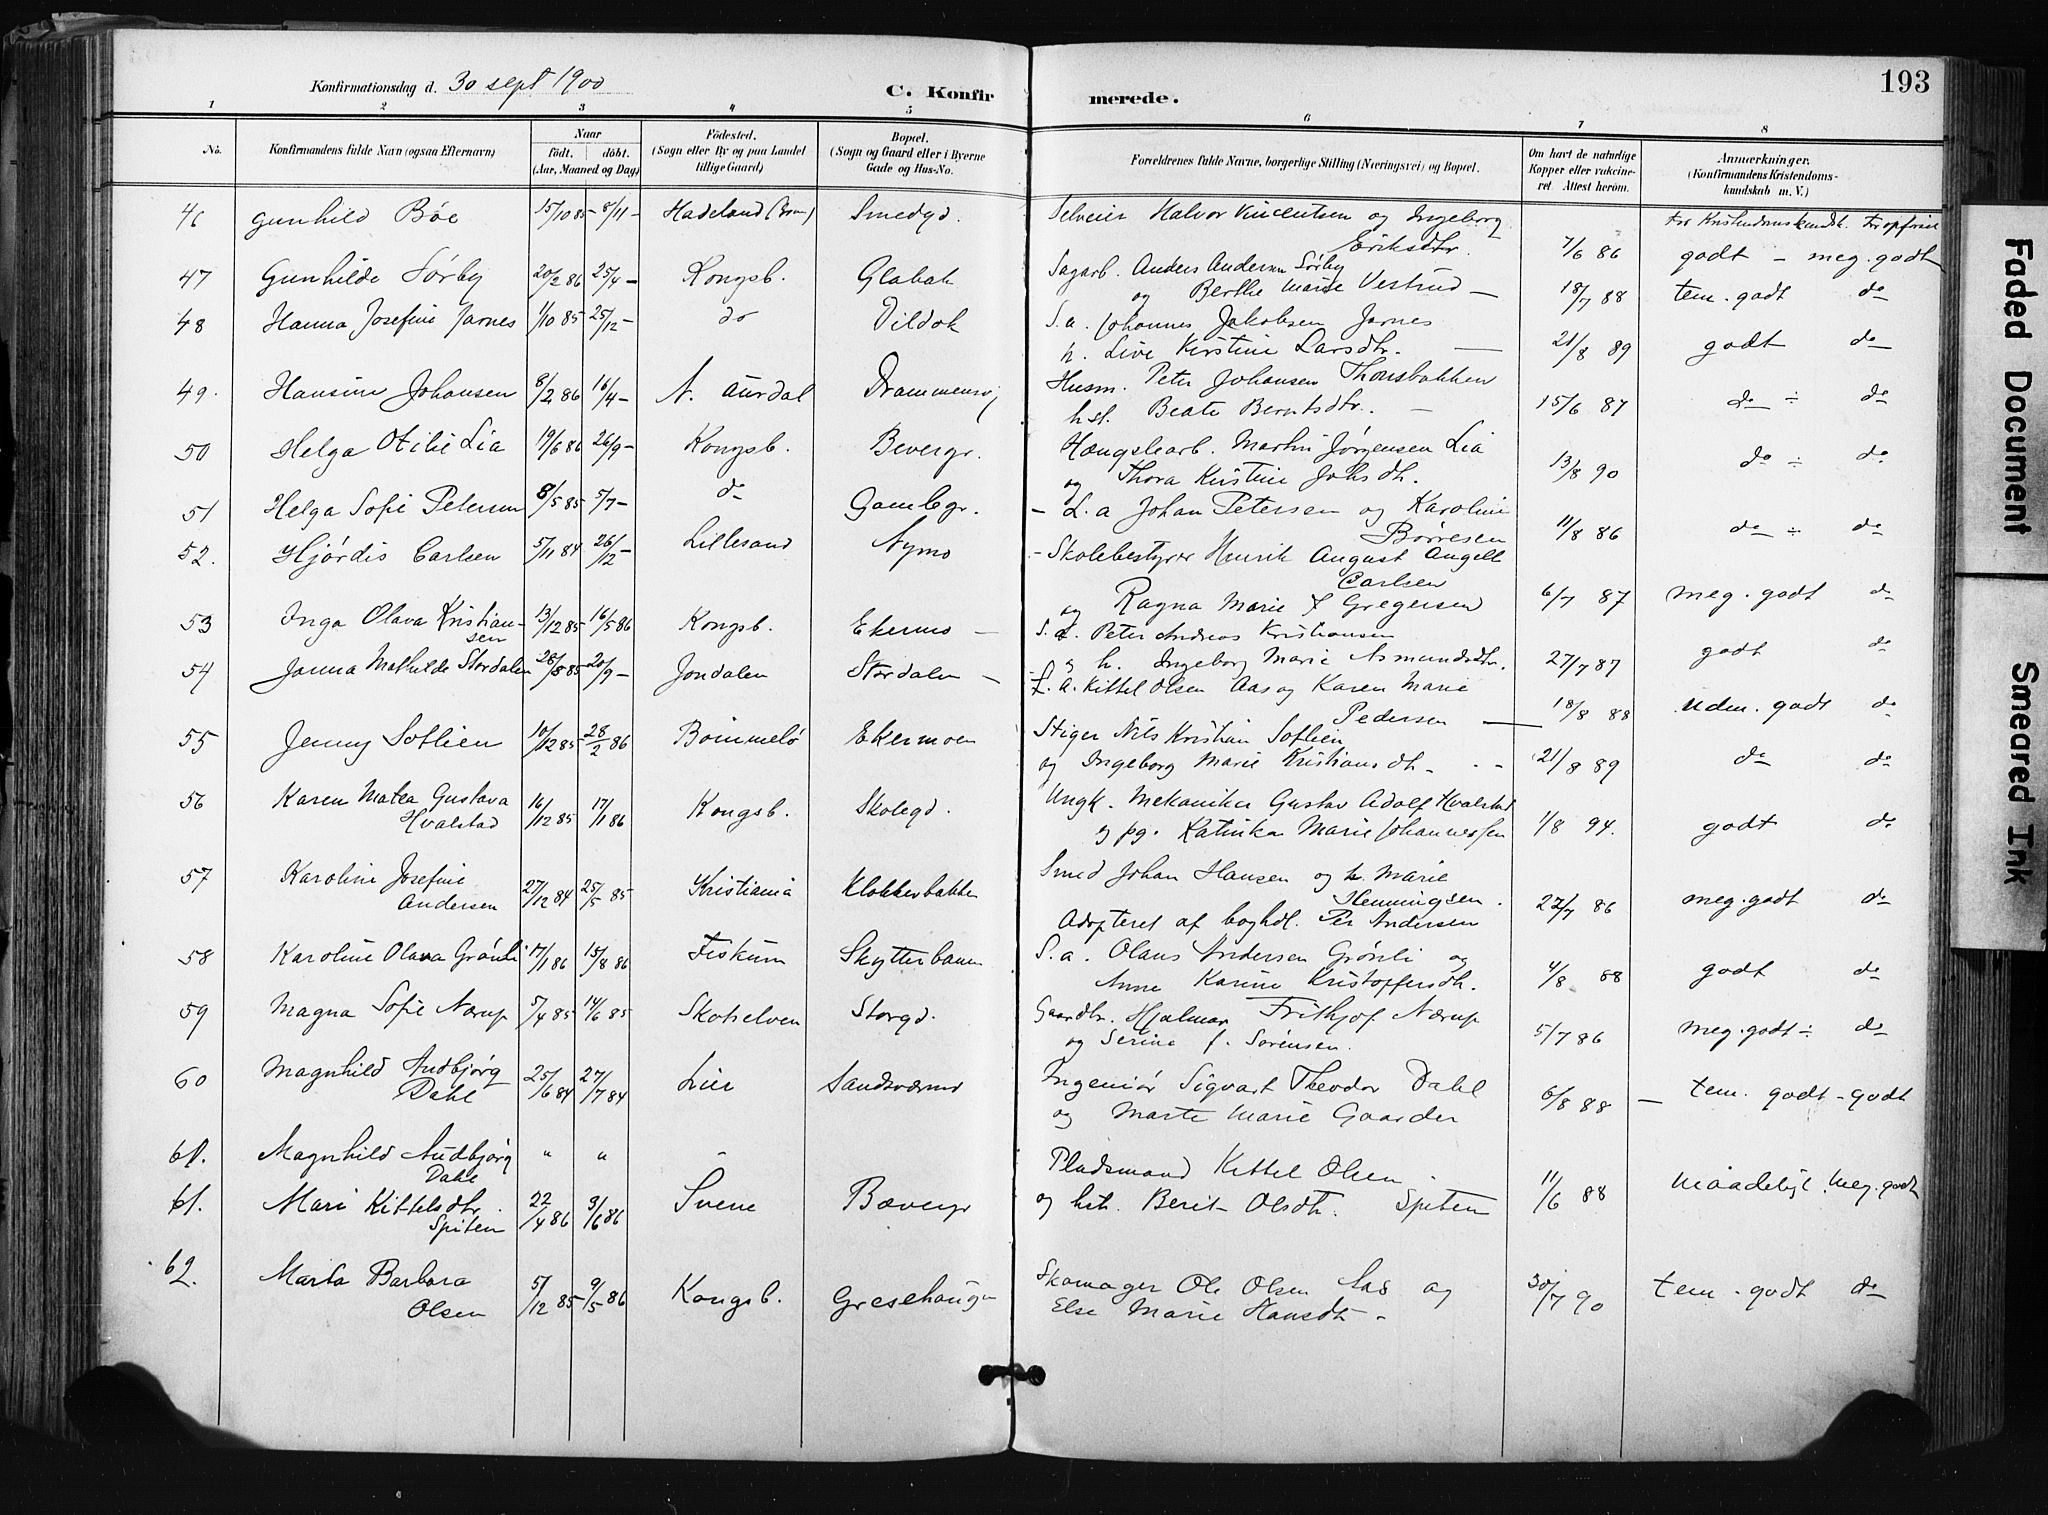 Konfirmationsdag d. 30 sept 1900
C. Konfirmerede.
193
1 2 3 4 5 6 7 8
No.
Konfirmandens fulde Navn (ogsaa Efternavn)
Naar
født. døbt.
(Aar, Maaned og Dag)
Fødested.
(Sogn eller By og paa Landet
tillige Gaard)
Bopæl.
(Sogn og Gaard eller i Byerne
Gade og Hus-No.
Forældrenes fulde Navne, borgerlige Stilling (Næringsvei) og Bopæl.
Om havt de naturlige
Kopper eller vakcine-
ret Attest herom.
Anmærkninger.
(Konfirmandens Kristendoms-
kundskab m. V.)
46 Gunhild Bøe 15/10 85 8/11 - Hadeland Smedgd. Selveier Halvor Vincentsen og Ingeborg
Eriksdtr. 7/6 86 godt - meg. godt
47 Gunhilde Sørby 20/2 86 25/4 - Kongsb. Glabak Sagarb. Anders Andersen Sørby
og Berthe Marie Vestrud - 18/7 88 tem. godt do
48 Hanna Josefine Jarnes 1/10 85 25/12 - do Vildok S.a. Johannes Jakobsen Jarnes
h. Live Kirstine Larsdtr. 21/8 89 godt do
49. Hansine Johansen 8/2 86 16/4 - N. Aurdal Drammensvj Husm. Peter Johansen Thonsbakken
hst. Beate Berntsdtr. - 15/6 87 do ÷ do
50 Helga Otilie Lia 19/6 86 26/9 - Kongsb. Bevergr. Hængslearb. Martin Jørgensen Lia
og Thora Kirstine Johsdtr. 13/8 90 do ÷ do
51 Helga Sofie Petersen 8/5 85 5/7 - do Gamlegr. - L.a Johan Petersen og Karoline
Børresen 11/8 86 do ÷ do
52. Hjørdis Carlsen 5/11 84 26/12 - Lillesand Nymo - Skolebestyrer Henrik August Angell
Carlsen
og Ragna Marie f Gregersen 6/7 87 meg. godt do
53 Inga Olava Kristian-
sen 13/12 85 16/5 86 Kongsb. Ekermo - S.a. Peter Andreas Kristiansen
og h. Ingeborg Marie Asmundsdtr. 27/7 87 godt do
54 Janna Mathilde Stordalen 28/8 85 20/9 - Jondalen Stordalen - L.a. Kittel Olsen Aas og Karen Marie
Pedersen 18/8 88 uden. godt do
55 Jenny Sotlien 10/12 85 28/2 86 Bømmelø Ekermoen Stiger Nils Kristian Sotlien
og Ingeborg Marie Kristiansdtr - 21/8 89 do do
56 Karen Matea Gustava
Hvalstad 16/12 85 17/1 86 Kongsb. Skolegd. Ungk. Mekaniker Gustav Adolf Hvalstad
og pg. Katinka Marie Johannessen 1/8 94. godt do
57 Karoline Josefine
Andersen 27/12 84 25/5 85 Kristiania Klokkerbakken Smed Johan Hansen og h. Marie
Henningsen. 22/7 86 meg. godt do
Adopteret af boghdl. Per Andersen
58 Karoline Olava Grønli 17/1 86 15/8 86 Fiskum Skytterbanen S.a. Olaus Andersen Grønli og
Anne Karine Kristoffersdtr. 4/8 88 godt do
59 Magna Sofie Nærup 5/4 85 14/6 85 Skotselven Storgd. Gaardbr. Hjalmar Frithjof Nærup
og Serine f. Sørensen. 5/7 86 meg. godt ÷ do
60 Magnhild Audbjørg
Dahl 25/6 84 27/7 84 Lier Sandsværmo Ingeniør Sigvart Theodor Dahl
og Marte Marie Gaarder 6/8 88 - tem. godt - godt
61. Magnhild Audbjørg
Dahl " "
61. Mari Kittelsdtr.
Spiten 22/4 86 9/6 86 Svene Bævergr Pladsmand Kittel Olsen
og hst. Berit Olsdtr. Spiten 11/6 88 maadeligt. Meg. godt
62. Marta Barbara
Olsen 5/12 85 9/5 86 Kongsb. Gresehaugen Skomager Ole Olsen Aas og
Else Marie Hansdtr - 30/7 90 tem. godt do
Faded Document
Smeared Ink